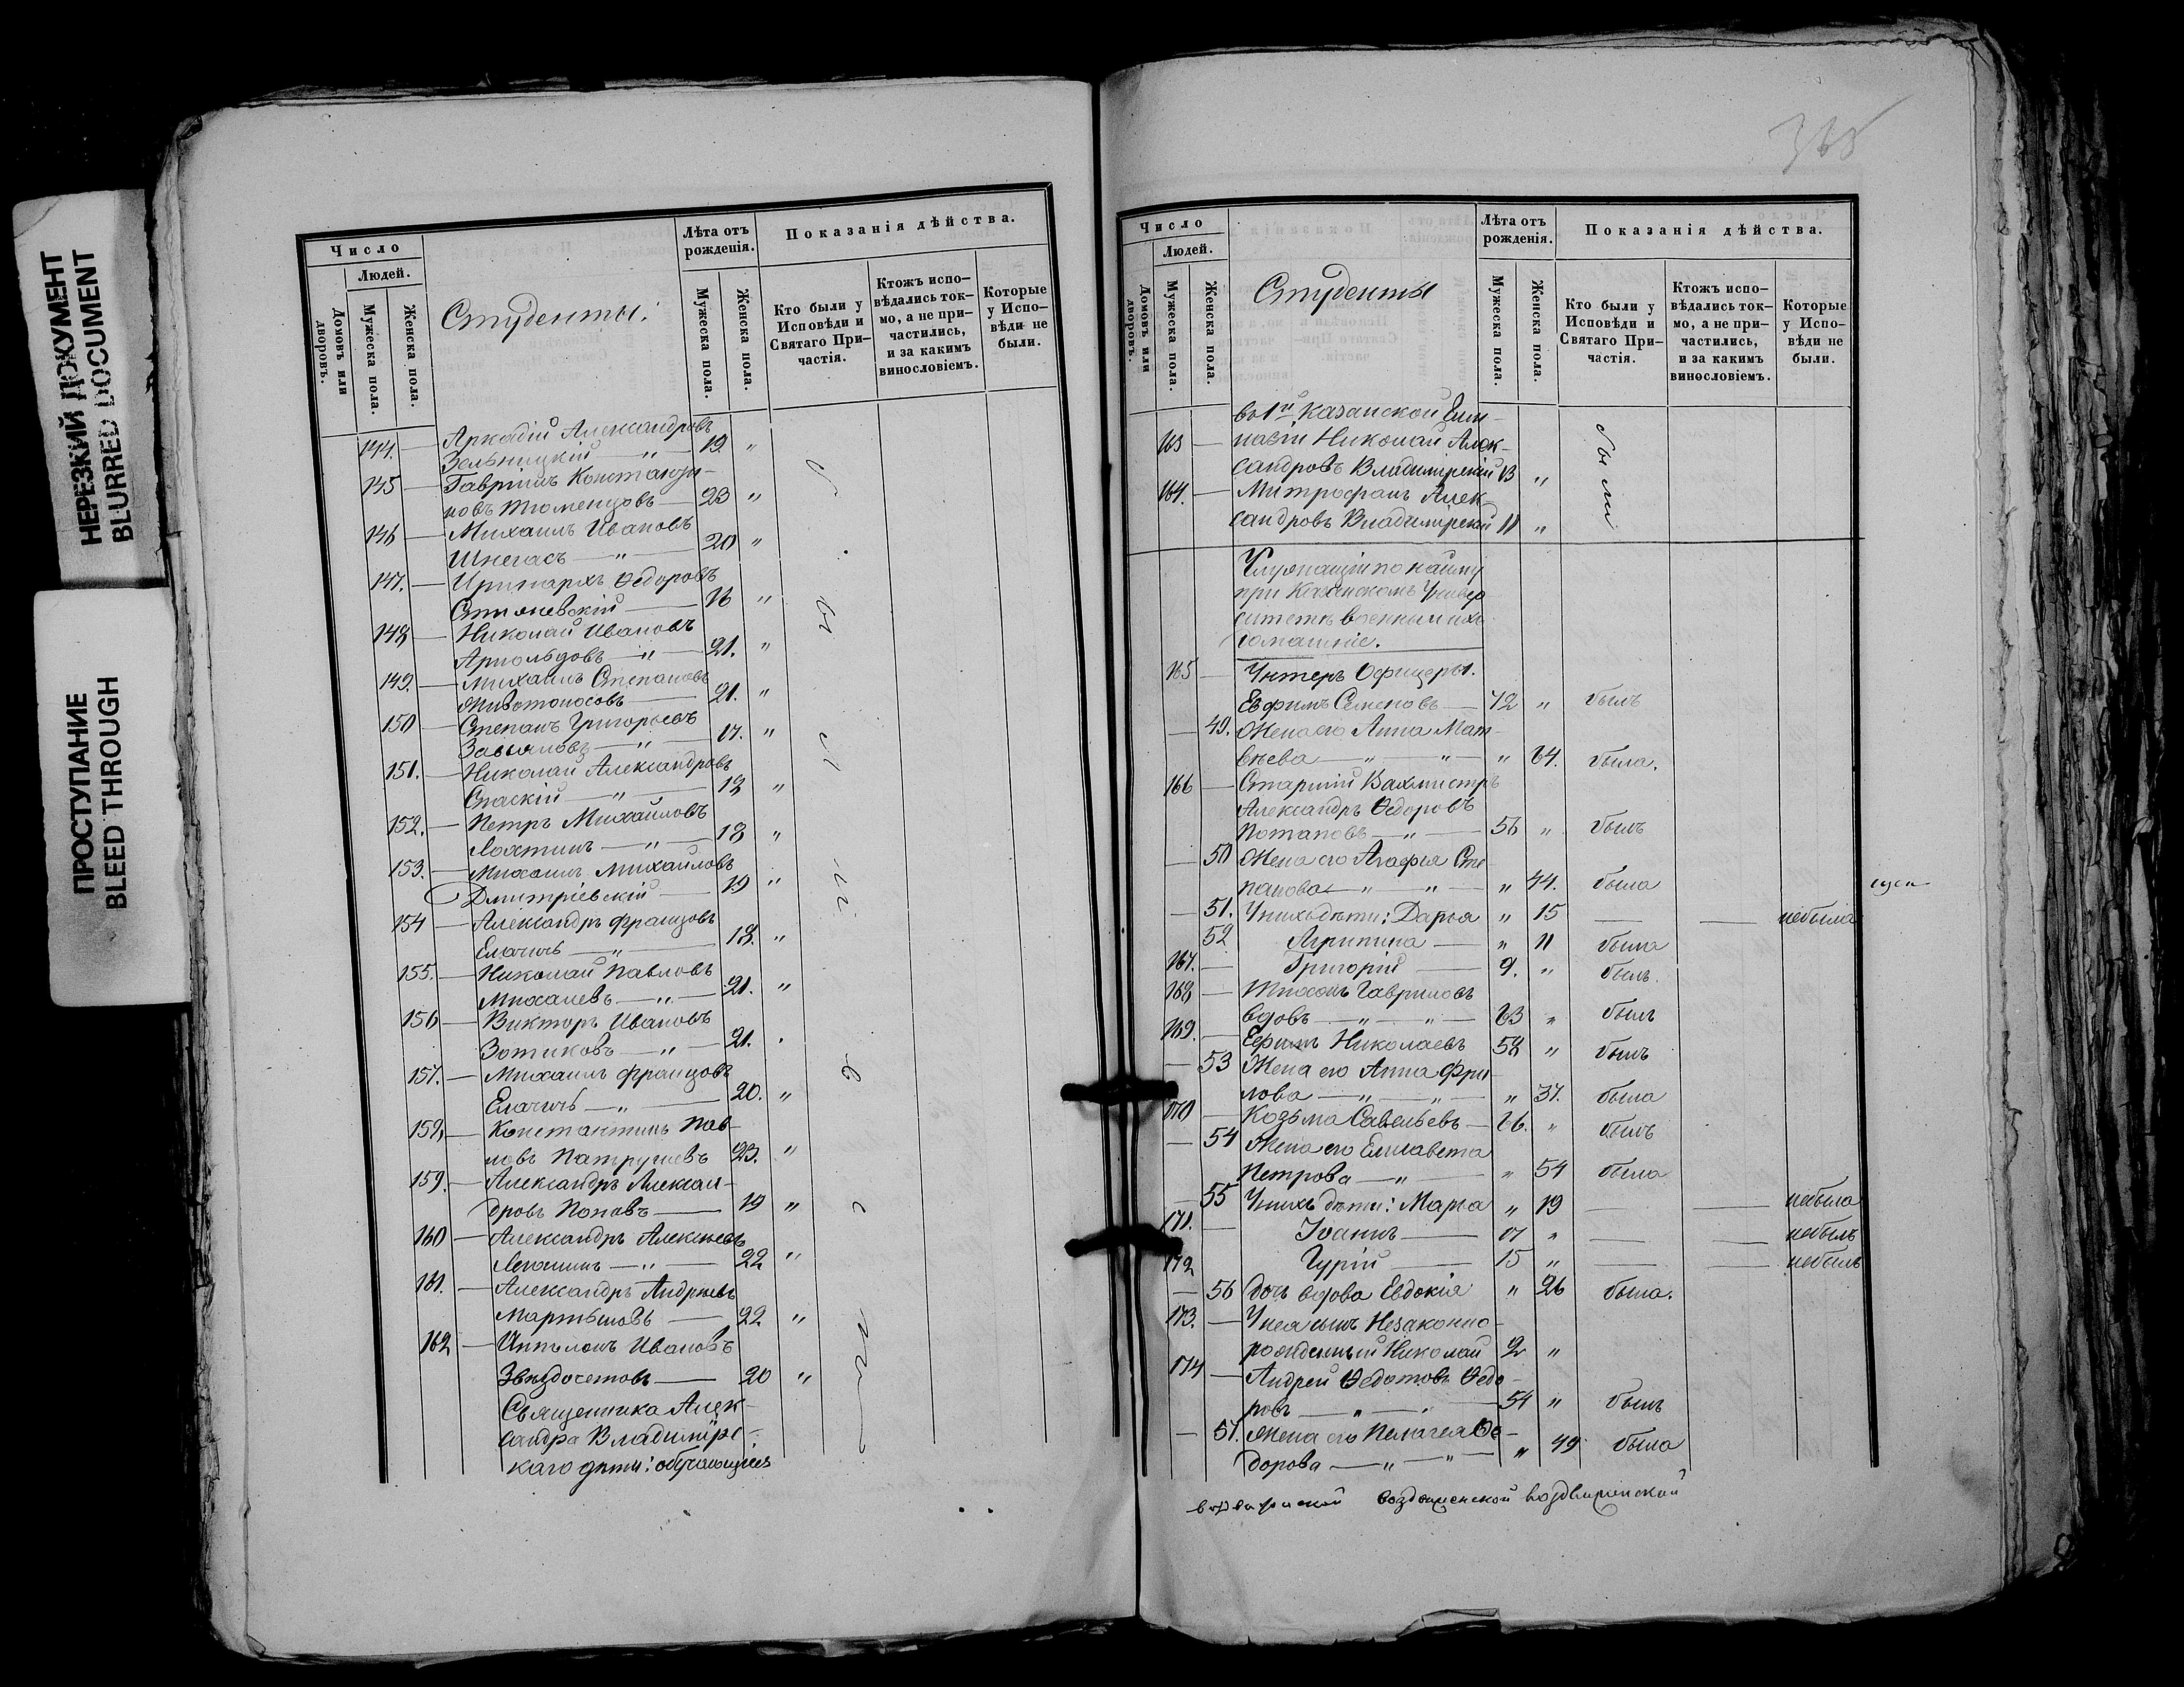 НЕРЕЗКИЙ ДОКУМЕНТ
BLURRED DOCUMENT
ПРОСТУПАНИЕ
BLEED THROUGH
Число
Людей.
Домовъ или дворовъ.
Мужеска пола.
Женска пола.
Студенты:
Лѣта отъ рожденія.
Мужеска пола.
Женска пола.
Показанія дѣйства.
Кто были у Исповѣди и Святаго При-частія.
Ктожъ испо-вѣдались ток-мо, а не при-частились, и за какимъ винословіемъ.
Которые у Испо-вѣди не были.
144. — Аркадій Александровъ
Зельницкій — " — 19. "
145 — Гавріилъ Константи-
новъ Тюменцовъ — 23 "
146 — Михаилъ Ивановъ
— " — 20 "
147. — Иринархъ Ѳедоровъ
— "
148 — Николай Ивановъ
Арнольдовъ — " — 21. "
149. — Михаилъ Степановъ
Животоносовъ — 21. "
150 — Степанъ Григорьевъ
Завьяловъ — " — 17. "
151. — Николай Александровъ
Спаскій — " — 18 "
152. — Петръ Михайловъ
Лохтинъ — " — 18 "
153. — Михаилъ Михайловъ
Дмитріевскій — 19 "
154 — Александръ Францовъ
Елачичъ — " — 18. "
155. — Николай Павловъ
Михалевъ — " — 21. "
156 — Викторъ Ивановъ
Зотиковъ — " — 21. "
157. — Михаилъ Францовъ
Елачичъ — " — 20. "
158. — Константинъ Пав-
ловъ Патрушевъ 23. "
159. — Александръ Алексан-
дровъ Поповъ — 19 "
160 — Александръ Алексѣевъ
— " — 22 "
161. — Александръ Андреевъ
Мартыновъ — 22 "
162 — Ивановъ
Звѣздочетовъ — 20 "
Священника Алек-
сандра Владимірс-
каго дѣти: обучающіеся
были
365
Число
Людей.
Домовъ или дворовъ.
Мужеска пола.
Женска пола.
Студенты
Лѣта отъ рожденія.
Мужеска пола.
Женска пола.
Показанія дѣйства.
Кто были у Исповѣди и Святаго При-частія.
Ктожъ испо-вѣдались ток-мо, а не при-частились, и за какимъ винословіемъ.
Которые у Испо-вѣди не были.
въ 1й Казанской Гим-
163 — назіи Николай Алек-
сандровъ Владимірскій 13 "
164. — Митрофанъ Алек-
сандровъ Владимірскій 11 "
были
Служащіе по найму
при Казанскомъ Универ
ситетѣ военные и ихъ
домашніе.
165 — Унтеръ Офицеры.
Евфимъ Семеновъ — 72 " былъ
— 49. Жена его Анна Мат-
вѣева — " — " — " 64. была.
166 — Старшій Вахмистръ
Александръ Ѳедоровъ
Потаповъ — " — 56 " былъ
— 50 Жена его Агафія Сте
панова — " — " — " 44. была
— 51. У нихъ дѣти: Дарья " 15 — — небыла
52 Агрипина — " 11 была
167. — Григорій — 9. " былъ.
168 — Тихонъ Гавриловъ
вдовъ — " — " — 63 " былъ
169. — Ефимъ Николаевъ 58 " былъ
— 53 Жена его Анна
— " — " — " 37. была
170 — Козьма Савельевъ — 66. " былъ
— 54 Жена его Елисавета
Петрова — " — " 54 была
— 55 У нихъ дѣти: Марья " 19 — — небыла
171. — Іоаннъ — 17 " — — небылъ
172 Гурій — 15 " — — небылъ
— 56 дочь вдова Евдокія " 26 была.
173. — У нея сынъ Незаконно-
рожденный Николай 2 "
174 — Андрей Ѳедотовъ Ѳедо-
ровъ — " — 54 " былъ
— 57. Жена его Пелагея Ѳе-
дорова — " — " — " 49 была
Воздвиженской воздвиженской